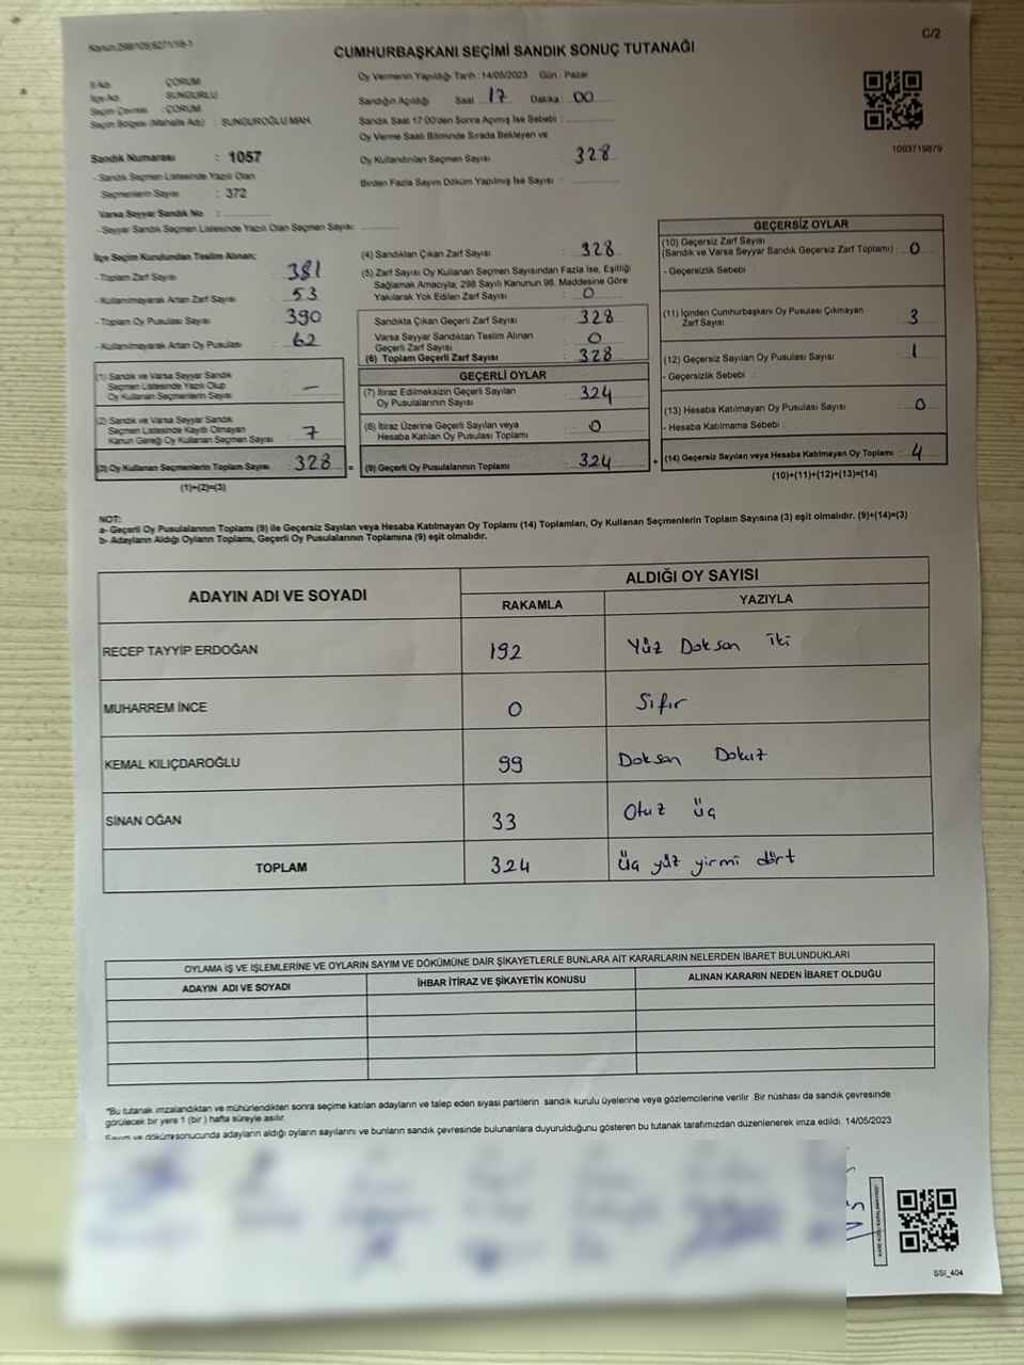 C/2
CUMHURBAŞKANI SEÇİMİ SANDIK SONUÇ TUTANAĞI
Oy Vermenin Yapıldığı Tarih : 14/05/2023 Gün : Pazar
Sandığın Açıldığı Saat 17 Dakika : 00
Sandık Saat 17:00'den Sonra Açılmış İse Sebebi :
Oy Verme Saati Bitiminde Sırada Bekleyen ve
Oy Kullandırılan Seçmen Sayısı 328
Birden Fazla Sayım Döküm Yapılmış İse Sayısı :
1093719879
İl Adı : ÇORUM
İlçe Adı : SUNGURLU
Seçim Çevresi : ÇORUM
Seçim Bölgesi (Mahalle Adı) : SUNGUROĞLU MAH.
Sandık Numarası : 1057
- Sandık Seçmen Listesinde Yazılı Olan
Seçmenlerin Sayısı : 372
Varsa Seyyar Sandık No :
- Seyyar Sandık Seçmen Listesinde Yazılı Olan Seçmen Sayısı:
İlçe Seçim Kurulundan Teslim Alınan;
- Toplam Zarf Sayısı 381
- Kullanılmayarak Artan Zarf Sayısı 53
- Toplam Oy Pusulası Sayısı 390
- Kullanılmayarak Artan Oy Pusulası 62
(1) Sandık ve Varsa Seyyar Sandık
Seçmen Listesinde Yazılı Olup
Oy Kullanan Seçmenlerin Sayısı —
(2) Sandık ve Varsa Seyyar Sandık
Seçmen Listesinde Kayıtlı Olmayan
Kanun Gereği Oy Kullanan Seçmen Sayısı 7
(3) Oy Kullanan Seçmenlerin Toplam Sayısı 328
(1)+(2)=(3)
(4) Sandıktan Çıkan Zarf Sayısı : 328
(5) Zarf Sayısı Oy Kullanan Seçmen Sayısından Fazla İse, Eşitliği
Sağlamak Amacıyla; 298 Sayılı Kanunun 98. Maddesine Göre
Yakılarak Yok Edilen Zarf Sayısı : 0
Sandıkta Çıkan Geçerli Zarf Sayısı : 328
Varsa Seyyar Sandıktan Teslim Alınan
Geçerli Zarf Sayısı : 0
(6) Toplam Geçerli Zarf Sayısı : 328
GEÇERLİ OYLAR
(7) İtiraz Edilmeksizin Geçerli Sayılan
Oy Pusulalarının Sayısı 324
(8) İtiraz Üzerine Geçerli Sayılan veya
Hesaba Katılan Oy Pusulası Toplamı 0
(9) Geçerli Oy Pusulalarının Toplamı 324
GEÇERSİZ OYLAR
(10) Geçersiz Zarf Sayısı
(Sandık ve Varsa Seyyar Sandık Geçersiz Zarf Toplamı) : 0
- Geçersizlik Sebebi :
(11) İçinden Cumhurbaşkanı Oy Pusulası Çıkmayan
Zarf Sayısı 3
(12) Geçersiz Sayılan Oy Pusulası Sayısı 1
- Geçersizlik Sebebi :
(13) Hesaba Katılmayan Oy Pusulası Sayısı 0
- Hesaba Katılmama Sebebi :
(14) Geçersiz Sayılan veya Hesaba Katılmayan Oy Toplamı : 4
(10)+(11)+(12)+(13)=(14)
NOT:
a- Geçerli Oy Pusulalarının Toplamı (9) ile Geçersiz Sayılan veya Hesaba Katılmayan Oy Toplamı (14) Toplamları, Oy Kullanan Seçmenlerin Toplam Sayısına (3) eşit olmalıdır. (9)+(14)=(3)
b- Adayların Aldığı Oyların Toplamı, Geçerli Oy Pusulalarının Toplamına (9) eşit olmalıdır.
ADAYIN ADI VE SOYADI ALDIĞI OY SAYISI
RAKAMLA YAZIYLA
RECEP TAYYİP ERDOĞAN 192 Yüz Doksan iki
MUHARREM İNCE 0 Sıfır
KEMAL KILIÇDAROĞLU 99 Doksan Dokuz
SİNAN OĞAN 33 Otuz üç
TOPLAM 324 üç yüz yirmi dört
OYLAMA İŞ VE İŞLEMLERİNE VE OYLARIN SAYIM VE DÖKÜMÜNE DAİR ŞİKAYETLERLE BUNLARA AİT KARARLARIN NELERDEN İBARET BULUNDUKLARI
ADAYIN ADI VE SOYADI İHBAR İTİRAZ VE ŞİKAYETİN KONUSU ALINAN KARARIN NEDEN İBARET OLDUĞU
"Bu tutanak imzalandıktan ve mühürlendikten sonra seçime katılan adayların ve talep eden siyasi partilerin sandık kurulu üyelerine veya gözlemcilerine verilir. Bir nüshası da sandık çevresinde
görülecek bir yere 1 (bir) hafta süreyle asılır.
Sayım ve döküm sonucunda adayların aldığı oyların sayılarını ve bunların sandık çevresinde bulunanlara duyurulduğunu gösteren bu tutanak tarafımızdan düzenlenerek imza edildi. 14/05/2023
SSI_404